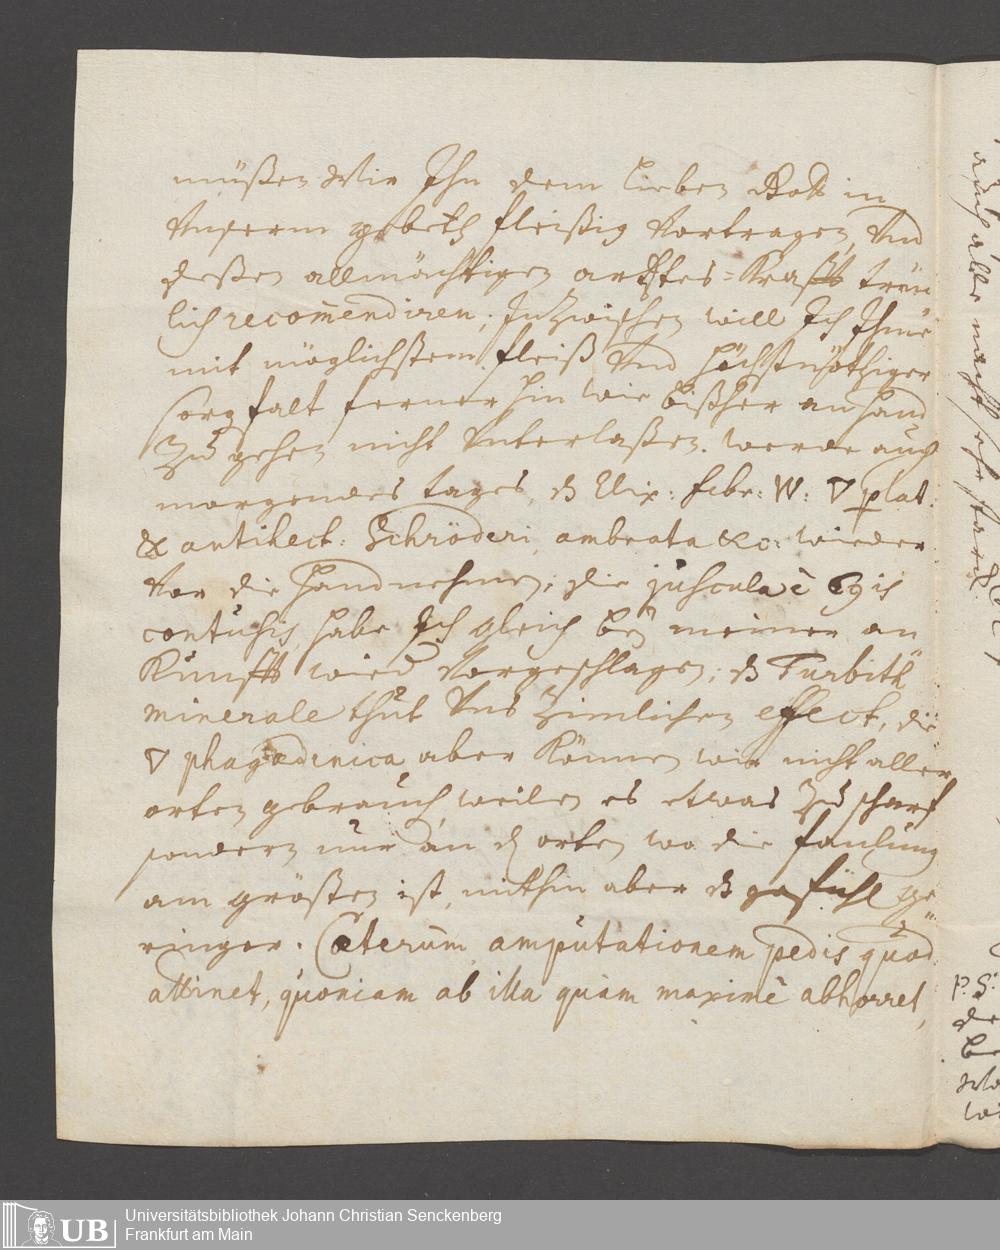 müßen Wir Ihn dem lieben Gott in
Unserm gebeth fleißig Vortragen, Und
deßen allmächtigen artztes-Krafft treü
lich recom̄endiren, Inzwischen will Ich Ihme
mit möglichstem fleiß Und höchstnöthiger
sorgfalt ferner hin wie bißher an hand
Zu gehen nicht Unterlaßen. werde auch
morgendes tages, ds Elix: febr: W: 🜄 plat.
& antihect: Schröderi, ambrata &c: wieder
Vor die hand nehmen; die juscula è 69is
contusis, habe Ich gleich beÿ meiner an
Kunfft wied Vorgeschlagen; ds Turbith
minerale thut Uns Zimlichen effect, die
🜄 phagædenica aber Können wir nicht aller
orten gebrauch, weilen es etwas Zu scharf
sondern nur an dn orten wo die faulung
am grösten ist, mithin aber ds gefühl ge
ringer. Cæterum amputationem pedis quod
attinet, quoniam ab illa quam maximè abhorret,
auch alle nacht sehr starck
P.S.
de
be
Wa
wi
Universitätsbibliothek Johann Christian Senckenberg
Frankfurt am Main
UB